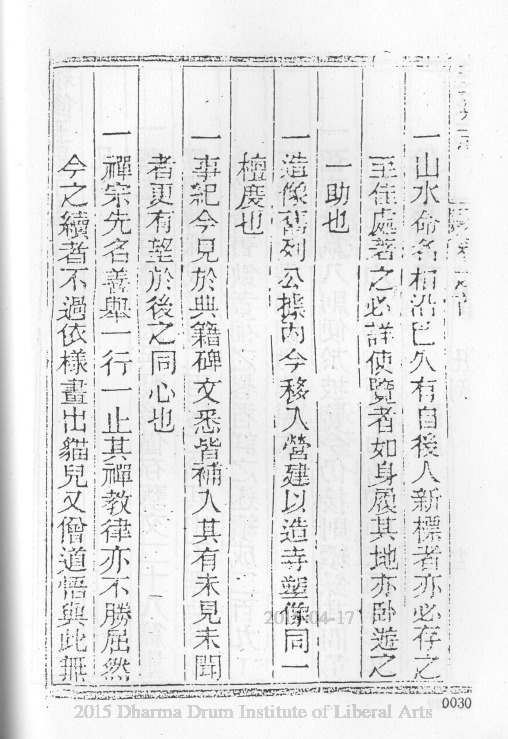 一山水命名相沿已久有自後人新標者亦必存之
至佳處著之必詳使覽者如身履其地亦臥遊之
一助也
一造像舊列公據內今移入營建以造寺塑像同一
檀度也
一事紀今見於典籍碑文悉皆補入其有未見未聞
者更有望於後之同心也
一禪宗先名善舉一行一止其禪教律亦不勝屈然
今之續者不過依樣畫出貓兒又僧道悟與此無
04-17
0030
2015 Dharma Drum Institute of Liberal Arts